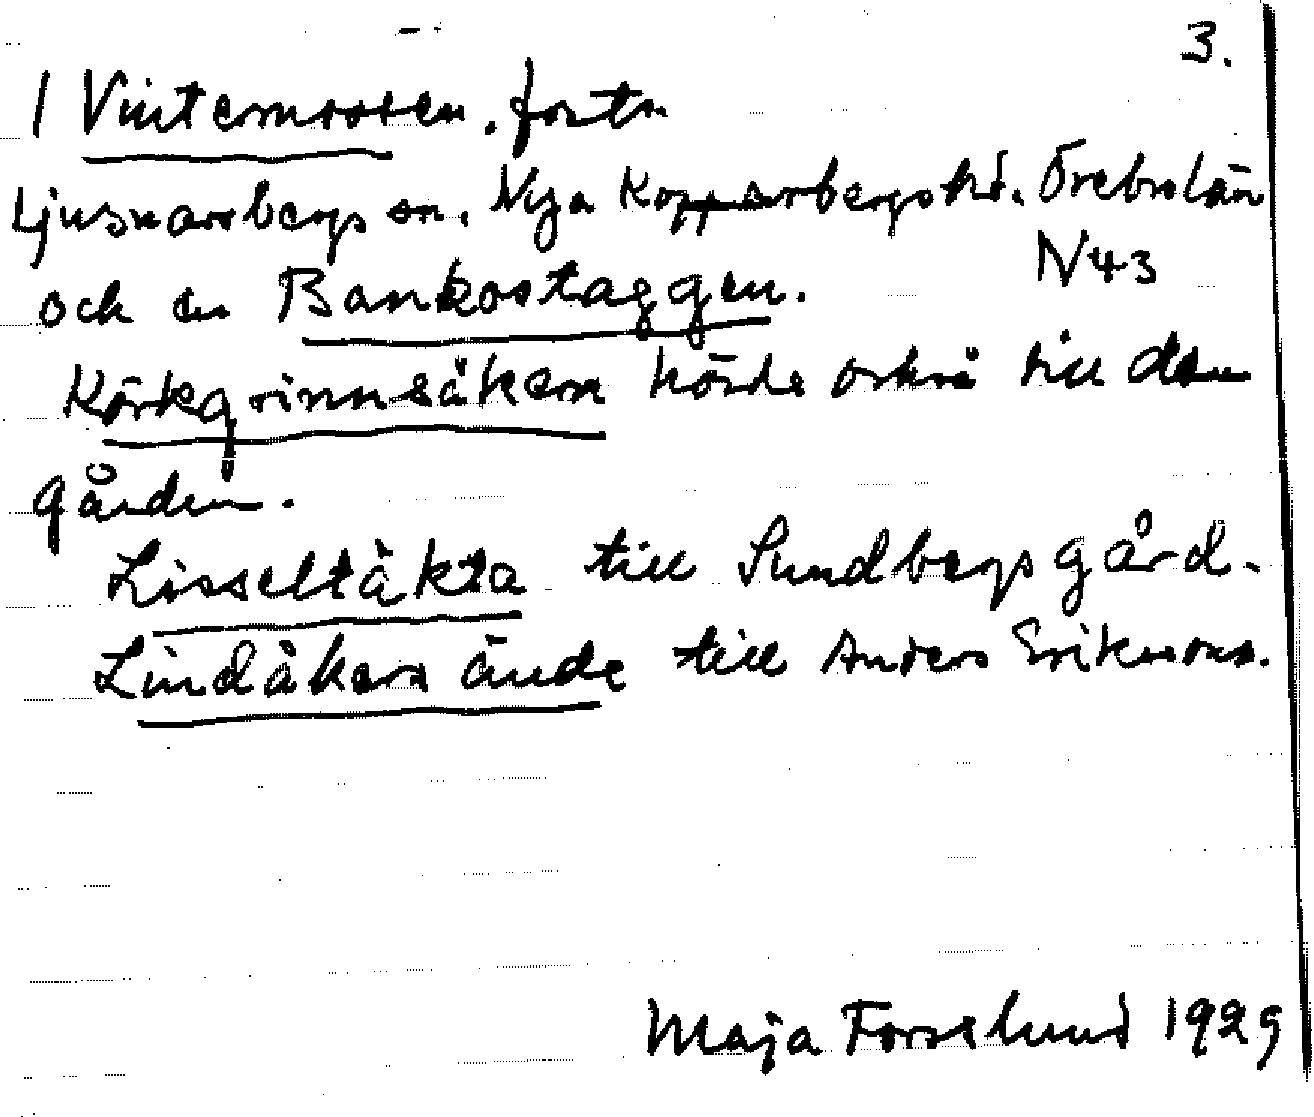 3.
1 Vintermossen. forts
Ljusnarsbergs sn. Nya Kopparbergs hd. Örebro län
N43
och en Bankostaggen.
Körkgrinnsåkern hörde också till den
gården.
Lisseltäkta till Sundbergsgård.
Lindåkers ände till Anders Eriksons.
Maja Forslund 1929